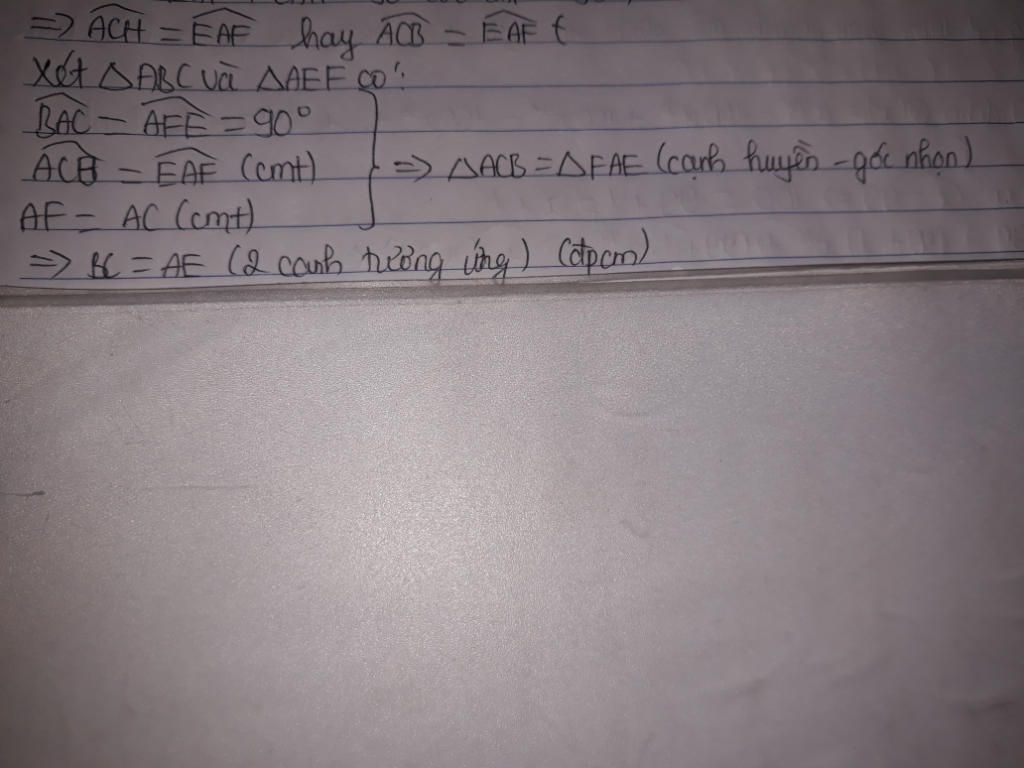 => ACH = EAF hay ACB = EAF
Xét △ABC và △AEF có:
BAC = AFE = 90°
ACB = EAF (cmt)
=> △ACB = △FAE (cạnh huyền - góc nhọn)
AF = AC (cmt)
=> BC = AE (2 cạnh tương ứng) (đpcm)